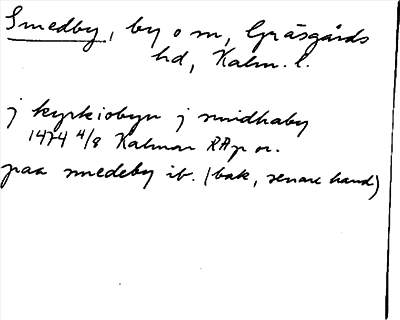 Smedby, by o sn, Gräsgårds
hd, Kalm. l.
j kyrkiobyn j smidhaby
1474 4/8 Kalmar RAp or.
paa smedeby ib. (bak, senare hand)